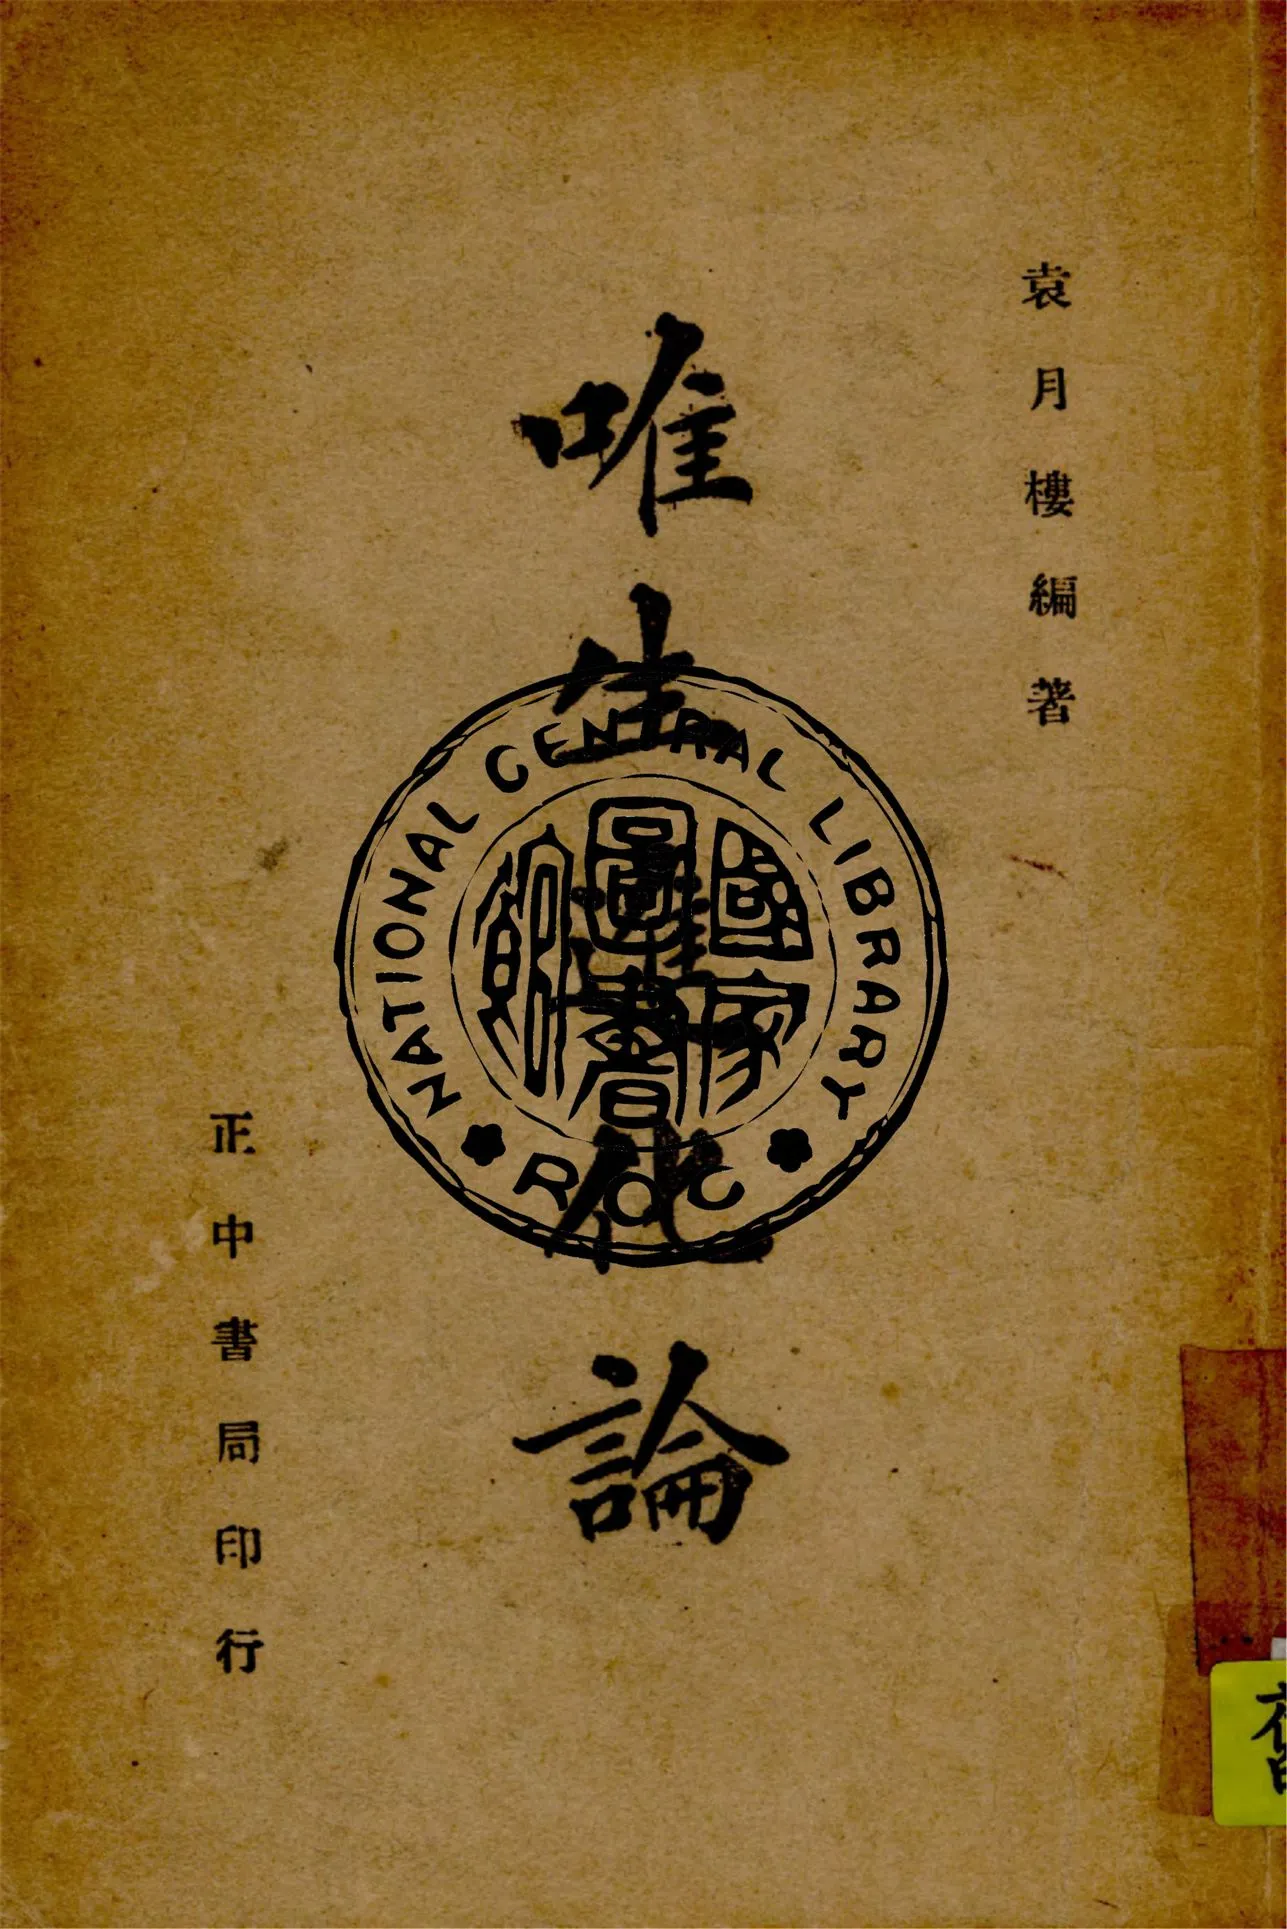 袁月樓編著
唯生進化論
正中書局印行
NATIONAL CENTRAL LIBRARY
國家
圖書
館
ROC